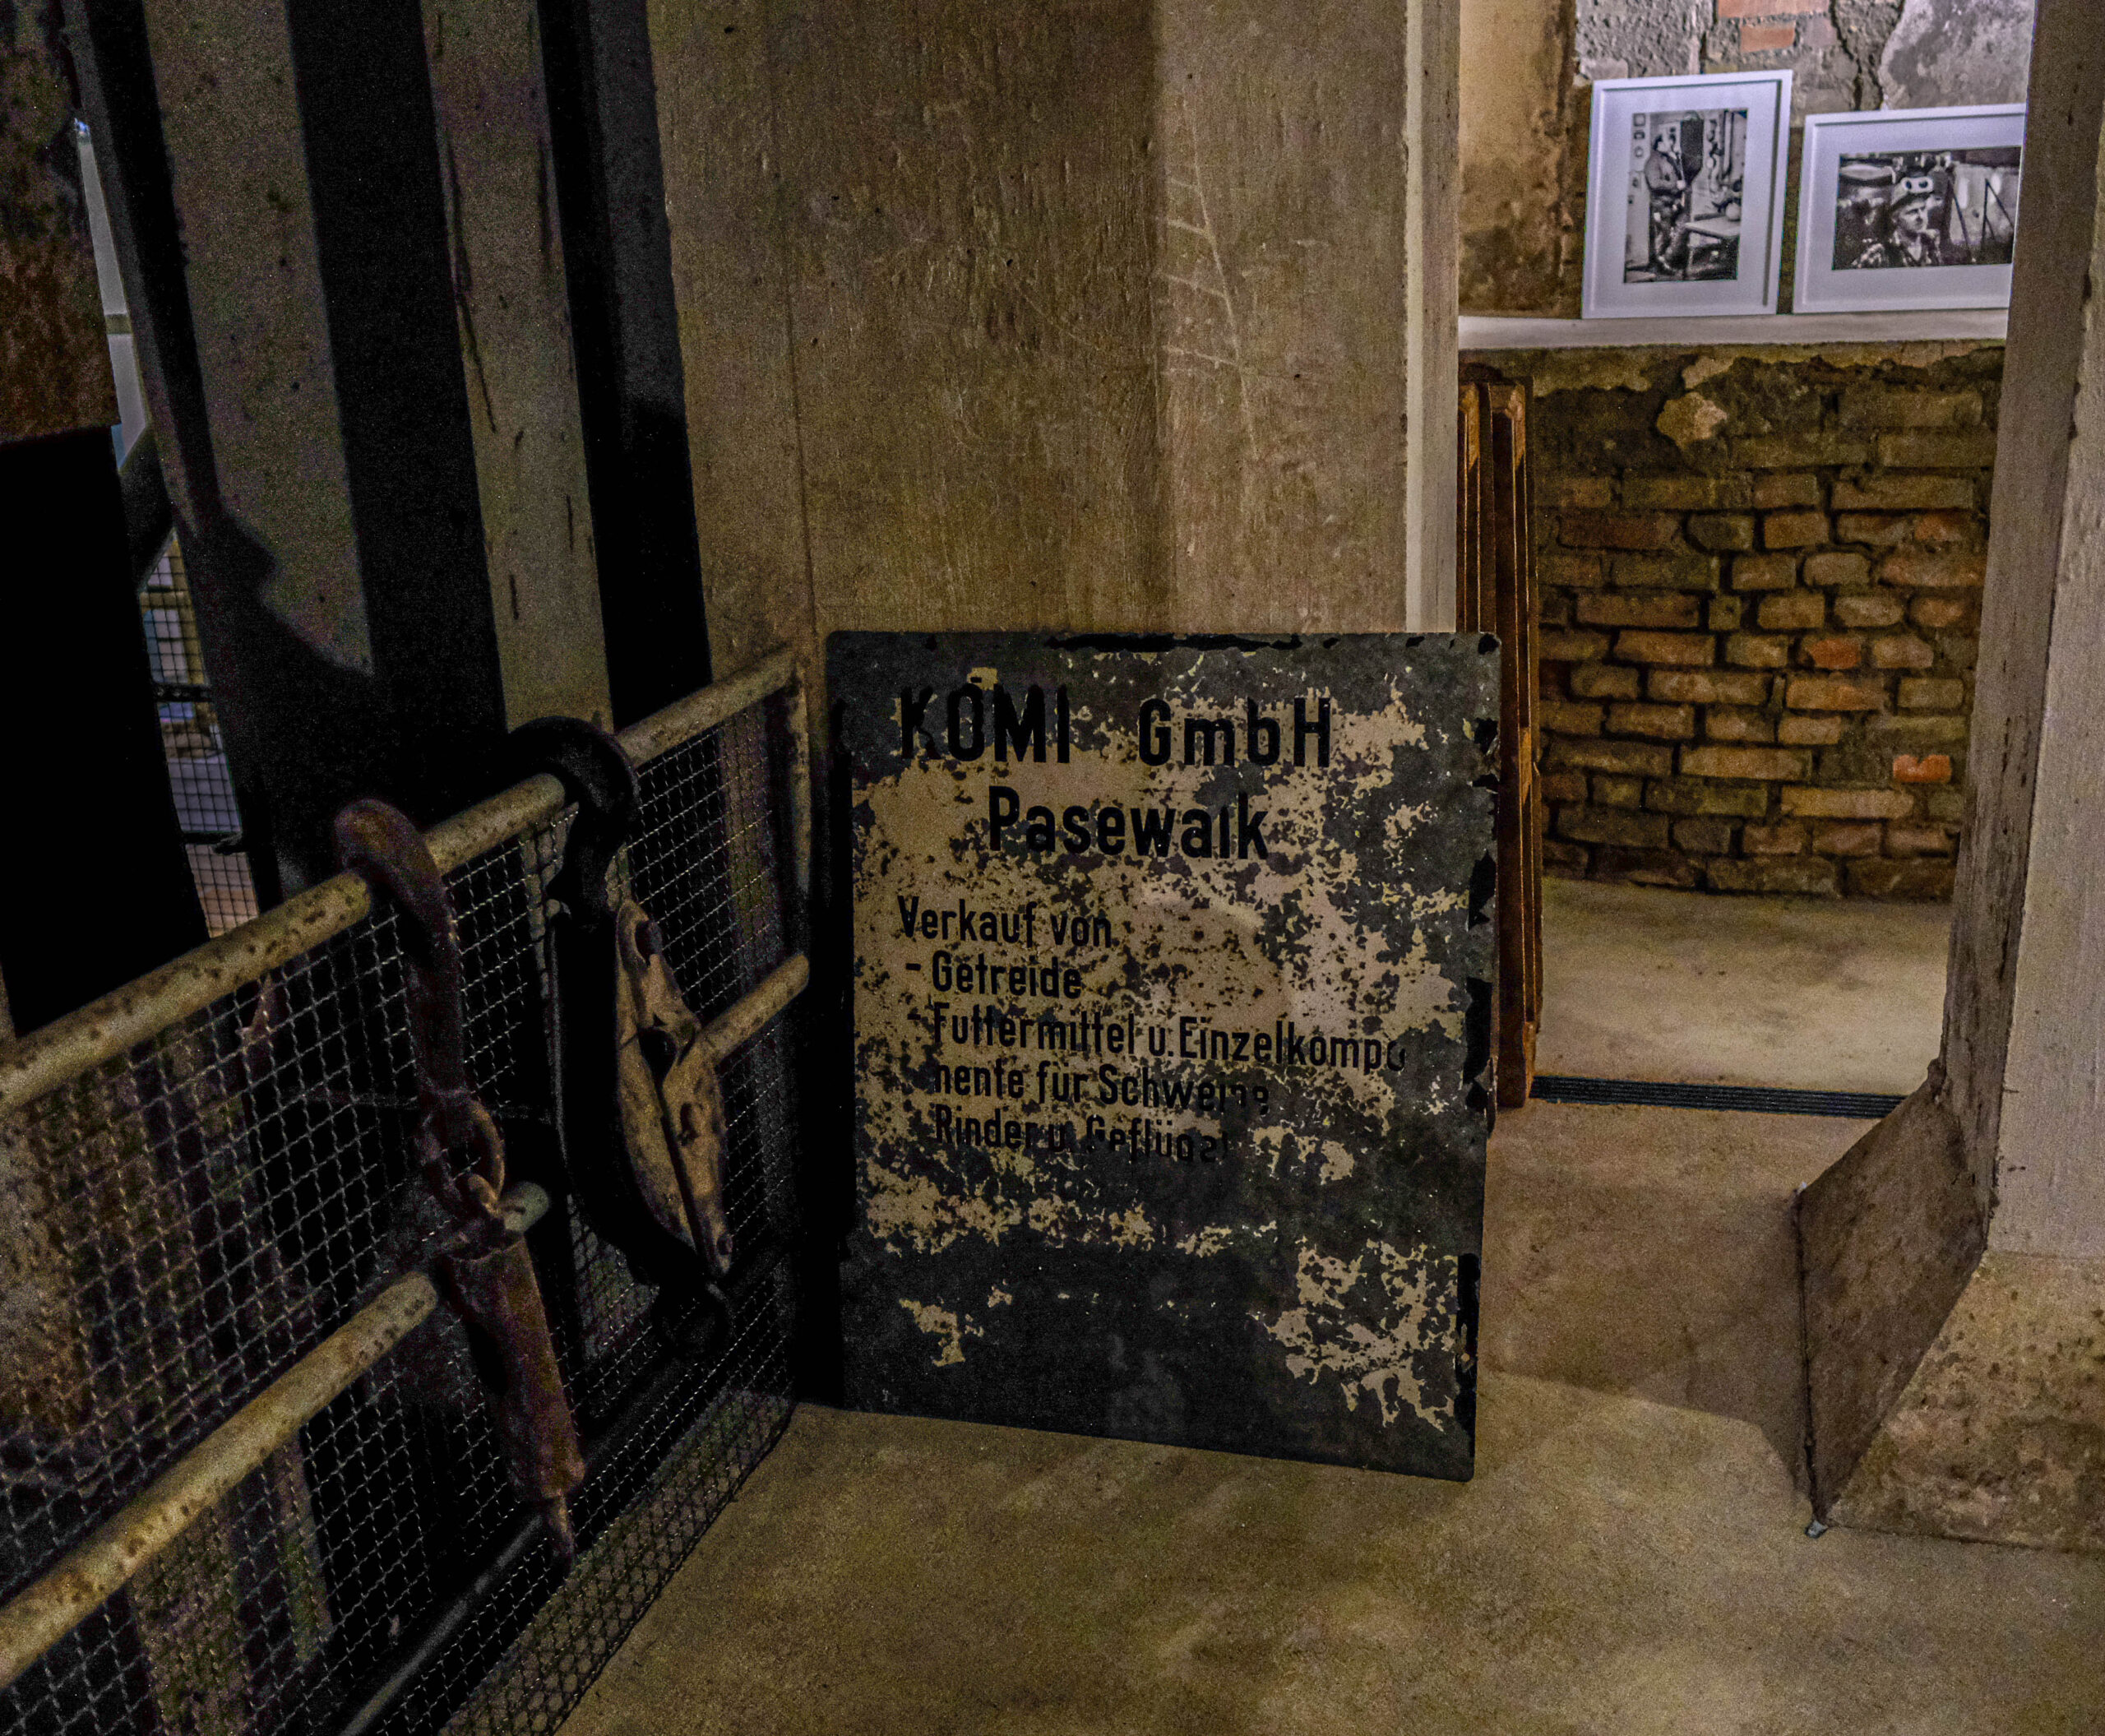 KÖMI GmbH
Pasewalk
Verkauf von
- Getreide
- Futtermittel u. Einzelkompo
nente für Schweine
Rinder u. Geflügel